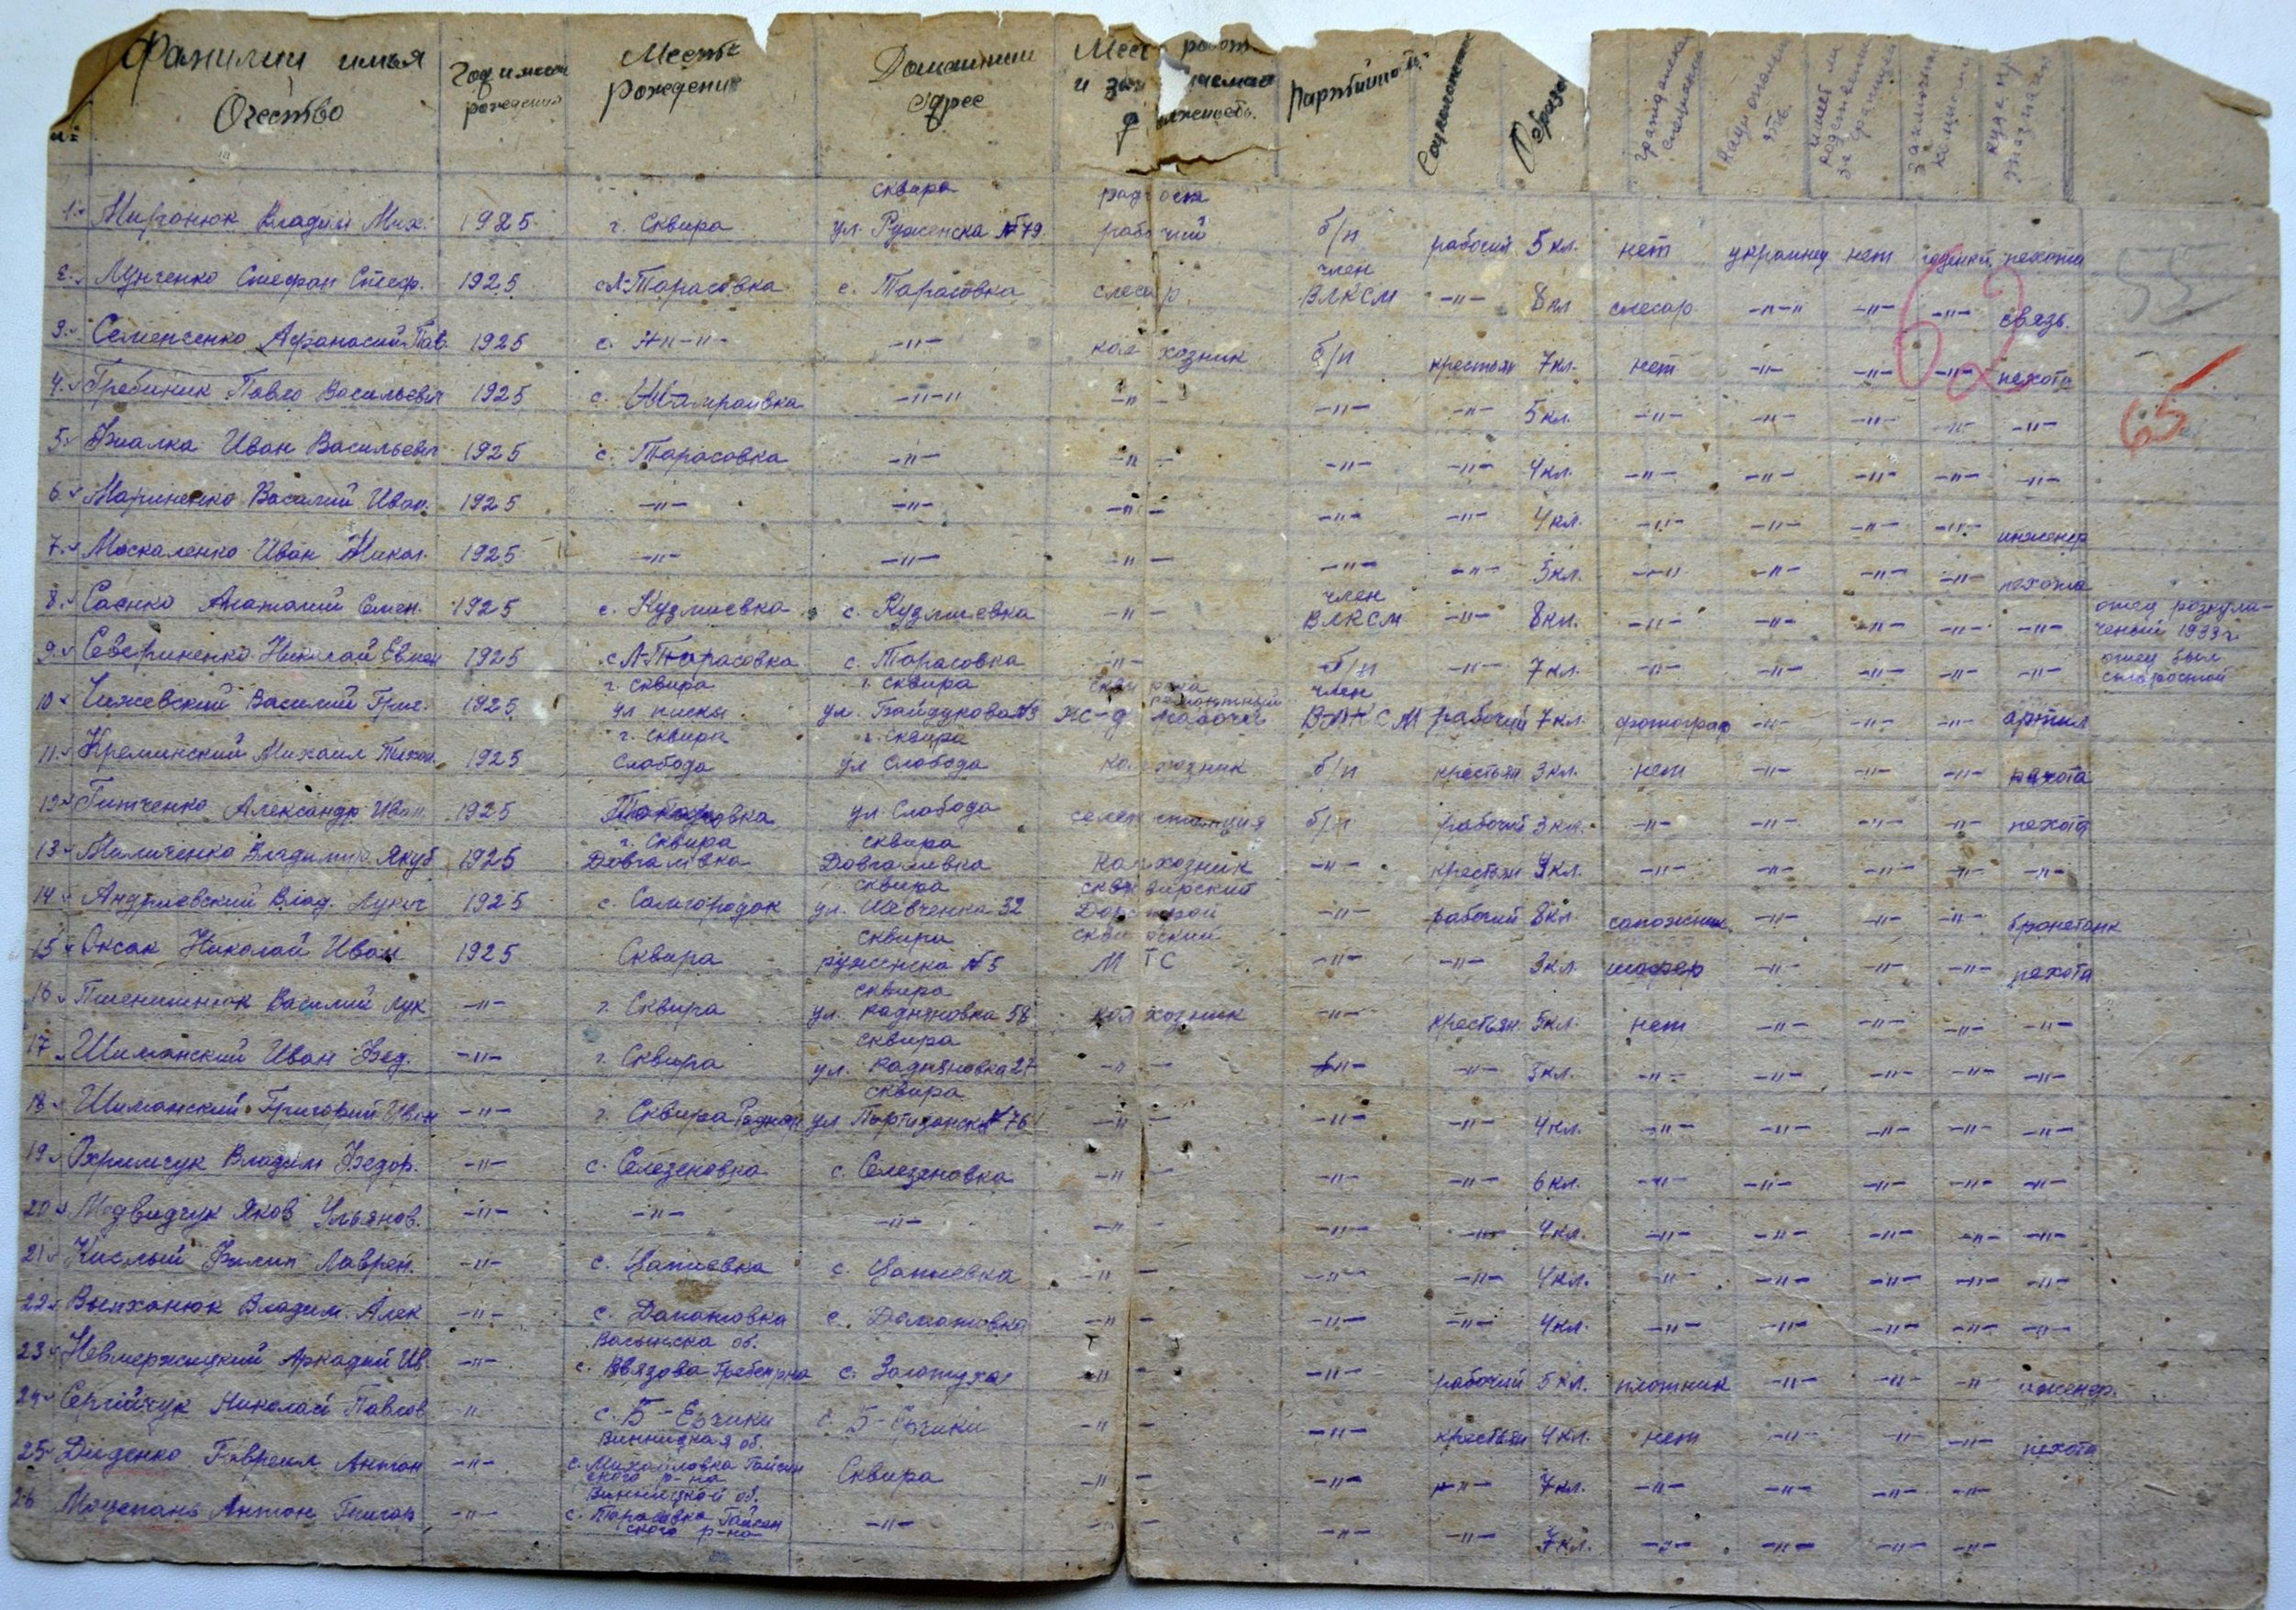 Фамилии имья Очество | Год и месяц рождения | Место рождения | Домашний адрес | Мест работ и зан должность | Партийность | Соцположение | Образов | гражданская специальность | Национальность | имеет ли родственник за границей | Заключение комиссии | куда пр
1. Миронюк Владим Мих. | 1925 | г. Сквира | сквира ул. Руженска №79 | рабочий | б/п | рабочий | 5 кл. | нет | украинец | нет | годный | пехота
2. Лунченко Стефан Стеф. | 1925 | с Л-Тарасовка | с. Тарасовка | слесар | член ВЛКСМ | -"- | 8 кл | слесар | -"-" | -"- | -"- | связь
3. Семенсенко Афанасий Пав. | 1925 | с. -"-"- | -"- | колхозник | б/п | крестьян | 7 кл. | нет | -"- | -"- | -"- | пехота
4. Гребиник Павло Васильевич | 1925 | с. Шамраивка | -"-" | -"- | -"- | -"- | 5 кл. | -"- | -"- | -"- | -"- | -"-
5. Фиалка Иван Васильевич | 1925 | с. Тарасовка | -"- | -"- | -"- | -"- | 4 кл. | -"- | -"- | -"- | -"- | -"-
6. Мариненко Василий Иван. | 1925 | -"- | -"- | -"- | -"- | -"- | 4 кл. | -"- | -"- | -"- | -"- | инженер
7. Москаленко Иван Никол. | 1925 | -"- | -"- | -"- | -"- | -"- | 5 кл. | -"- | -"- | -"- | -"- | пехота
8. Саенко Анатолий Семен. | 1925 | с. Кузмиевка | с. Кузмиевка | -"- | член ВЛКСМ | -"- | 8 кл. | -"- | -"- | -"- | -"- | -"- | отец розкулаченый 1933 г.
9. Севериненко Николай Евмен | 1925 | с Л-Тарасовка | с. Тарасовка | -"- | б/п | -"- | 7 кл. | -"- | -"- | -"- | -"- | -"- | отец был старостой
10. Чижевский Василий Григ. | 1925 | г. сквира ул пискы | г. сквира ул. Байдукова №9 | ж-д рабочий | член ВЛКСМ | рабочий | 7 кл. | фотограф | -"- | -"- | -"- | артил
11. Креминский Михаил Тихон. | 1925 | г. сквира Слобода | г. сквира ул Слобода | колхозник | б/п | крестьян | 3 кл. | нет | -"- | -"- | -"- | пехота
12. Гитченко Александр Иван. | 1925 | | ул Слобода | селекстанция | б/п | рабочий | 3 кл. | -"- | -"- | -"- | -"- | пехота
13. Миличенко Владимир Якуб | 1925 | г. Сквира Довгалівка | сквира Довгаливка | Колхозник | -"- | крестьян | кл. | -"- | -"- | -"- | -"- | -"-
14. Андриевский Влад. Лукич | 1925 | с. Самгородок | сквира ул. Шевченка 32 | сквирский Дорстрой | -"- | рабочий | 8 кл. | сапожник | -"- | -"- | -"- | бронетанк
15. Оксак Николай Иван | 1925 | Сквира | сквира руженска №5 | сквирский МТС | -"- | -"- | 3 кл. | шофер | -"- | -"- | -"- | пехота
16. Пшенишнюк Василий Лук | -"- | г. Сквира | сквира ул. Радняновка 58 | колхозник | -"- | крестьян. | 5 кл. | нет | -"- | -"- | -"- | -"-
17. Шиманский Иван Фед. | -"- | г. Сквира | сквира ул. Радняновка 27 | -"- | -"- | -"- | 3 кл. | -"- | -"- | -"- | -"- | -"-
18. Шиманский Григорий Иван | -"- | г. Сквира | сквира ул. Партизанска №76 | -"- | -"- | -"- | 4 кл. | -"- | -"- | -"- | -"- | -"-
19. Охримчук Владим Федор. | -"- | с. Селезеновка | с. Селезеновка | -"- | -"- | -"- | 6 кл. | -"- | -"- | -"- | -"- | -"-
20. Медвидчук Яков Ульянов. | -"- | -"- | -"- | -"- | -"- | -"- | 4 кл. | -"- | -"- | -"- | -"- | -"-
21. Кислый Филип Лаврен. | -"- | с. Цапиевка | с. Цапиевка | -"- | -"- | -"- | 4 кл. | -"- | -"- | -"- | -"- | -"-
22. Владим. Алек | -"- | с. Домантовка | с. Домантовка | -"- | -"- | -"- | 4 кл. | -"- | -"- | -"- | -"- | -"-
23. Невмержицкий Аркадий Ив. | -"- | Волынска об. с. | с. Золотуха | -"- | -"- | рабочий | 5 кл. | плотник | -"- | -"- | -"- | инженер.
24. Сергійчук Николай Павлов | " | с. Б-Ерчики | с. Б-Ерчики | -"- | -"- | крестьян | 4 кл. | нет | -"- | -"- | -"- | пехота
25. Диденко Гавреил Антон | -"- | Винницкая об. с. Михайловка Гайсинского р-на | Сквира | -"- | -"- | -"- | 7 кл. | -"- | -"- | -"- | -"-
26 Антон Григор | -"- | Винницкой об. с. Тарасовка Гайсинского р-на | -"- | -"- | -"- | -"- | 7 кл. | -"- | -"- | -"- | -"-
62
65